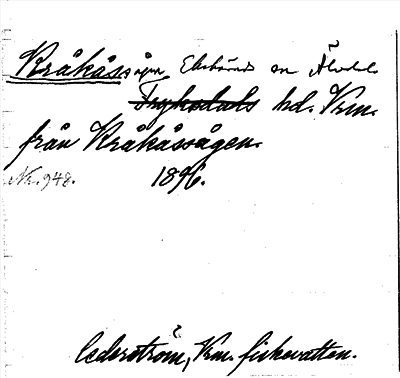 Kråkåssågen Ekshärad sn Älvdals
Fryksdals hd. Vrm.
från Kråkåssågen.
Nr. 948. 1896.
Cederström, Vrm. fiskevatten.